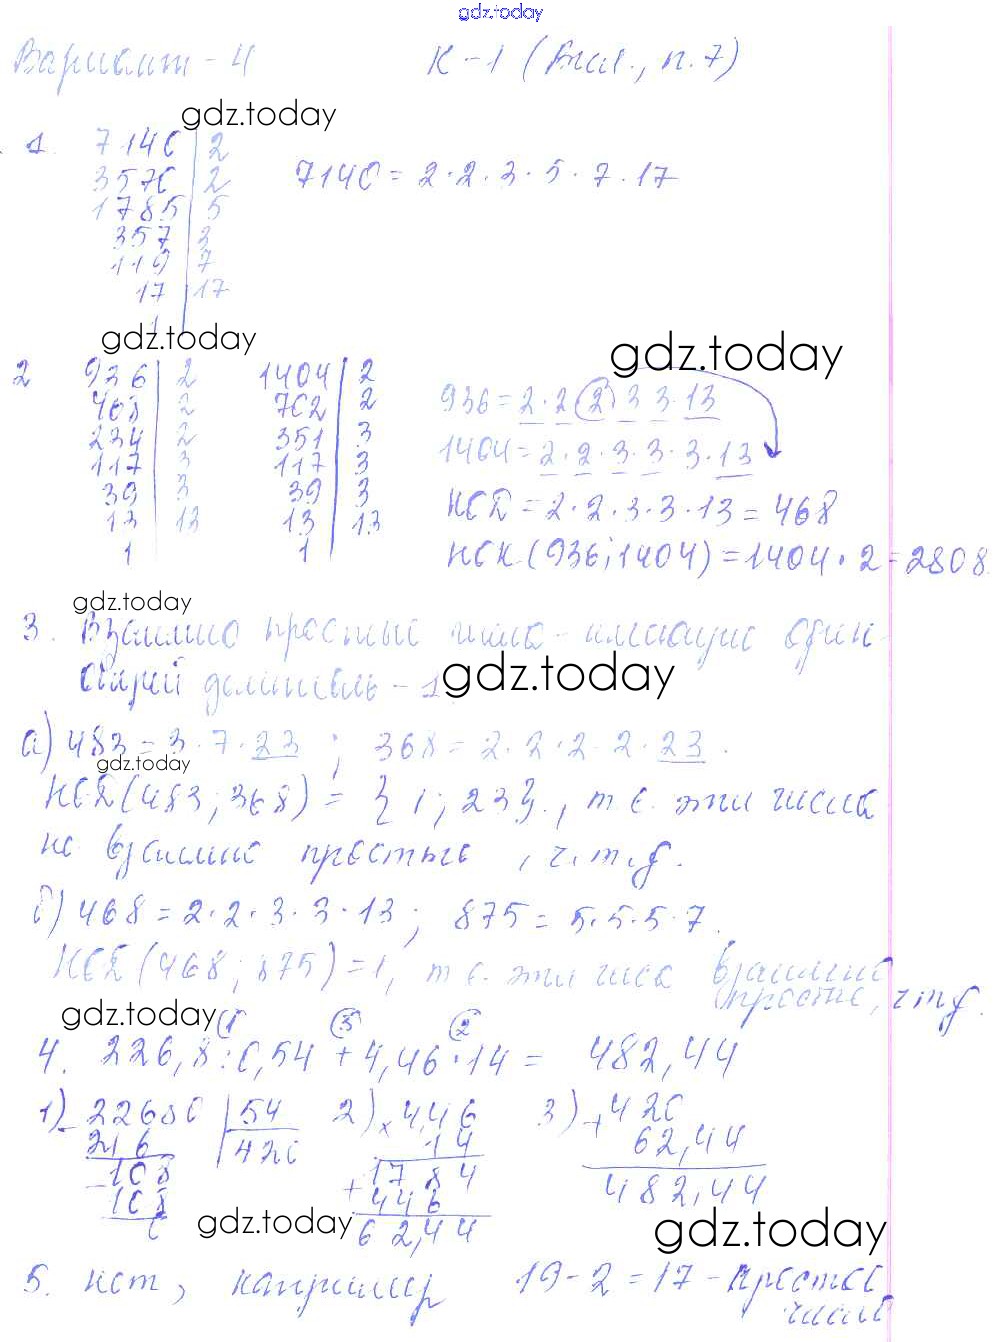 gdz.today
Вариант - 4 К - 1 (Вил., п. 7)
gdz.today
1. 7140 | 2
3570 | 2 7140 = 2 · 2 · 3 · 5 · 7 · 17
1785 | 5
357 | 3
119 | 7
17 | 17
1
gdz.today
gdz.today
2 936 | 2 1404 | 2 936 = 2 · 2 · 2 · 3 · 3 · 13
468 | 2 702 | 2
234 | 2 351 | 3 1404 = 2 · 2 · 3 · 3 · 3 · 13
117 | 3 117 | 3
39 | 3 39 | 3 НОД = 2 · 2 · 3 · 3 · 13 = 468
13 | 13 13 | 13
1 1 НОК (936; 1404) = 1404 · 2 = 2808
gdz.today
3. Взаимно простые числа - имеющие один
общий делитель - 1
gdz.today
а) 483 = 3 · 7 · 23 ; 368 = 2 · 2 · 2 · 2 · 23.
gdz.today
НОД (483; 368) = {1; 23}., т. е. эти числа
не взаимно простые, ч. т. д.
б) 468 = 2 · 2 · 3 · 3 · 13; 875 = 5 · 5 · 5 · 7.
НОД (468; 875) = 1, т. е. эти числа взаимно
простые, ч т д.
gdz.today
1 3 2
4. 226,8 : 0,54 + 4,46 · 14 = 482,44
1) - 22680 | 54 2) × 4,46 3) + 420
216 | 420 14 62,44
- 108 17 84 482,44
108 + 446
0 62,44
gdz.today
gdz.today
5. нет, например 19 - 2 = 17 - простое
число